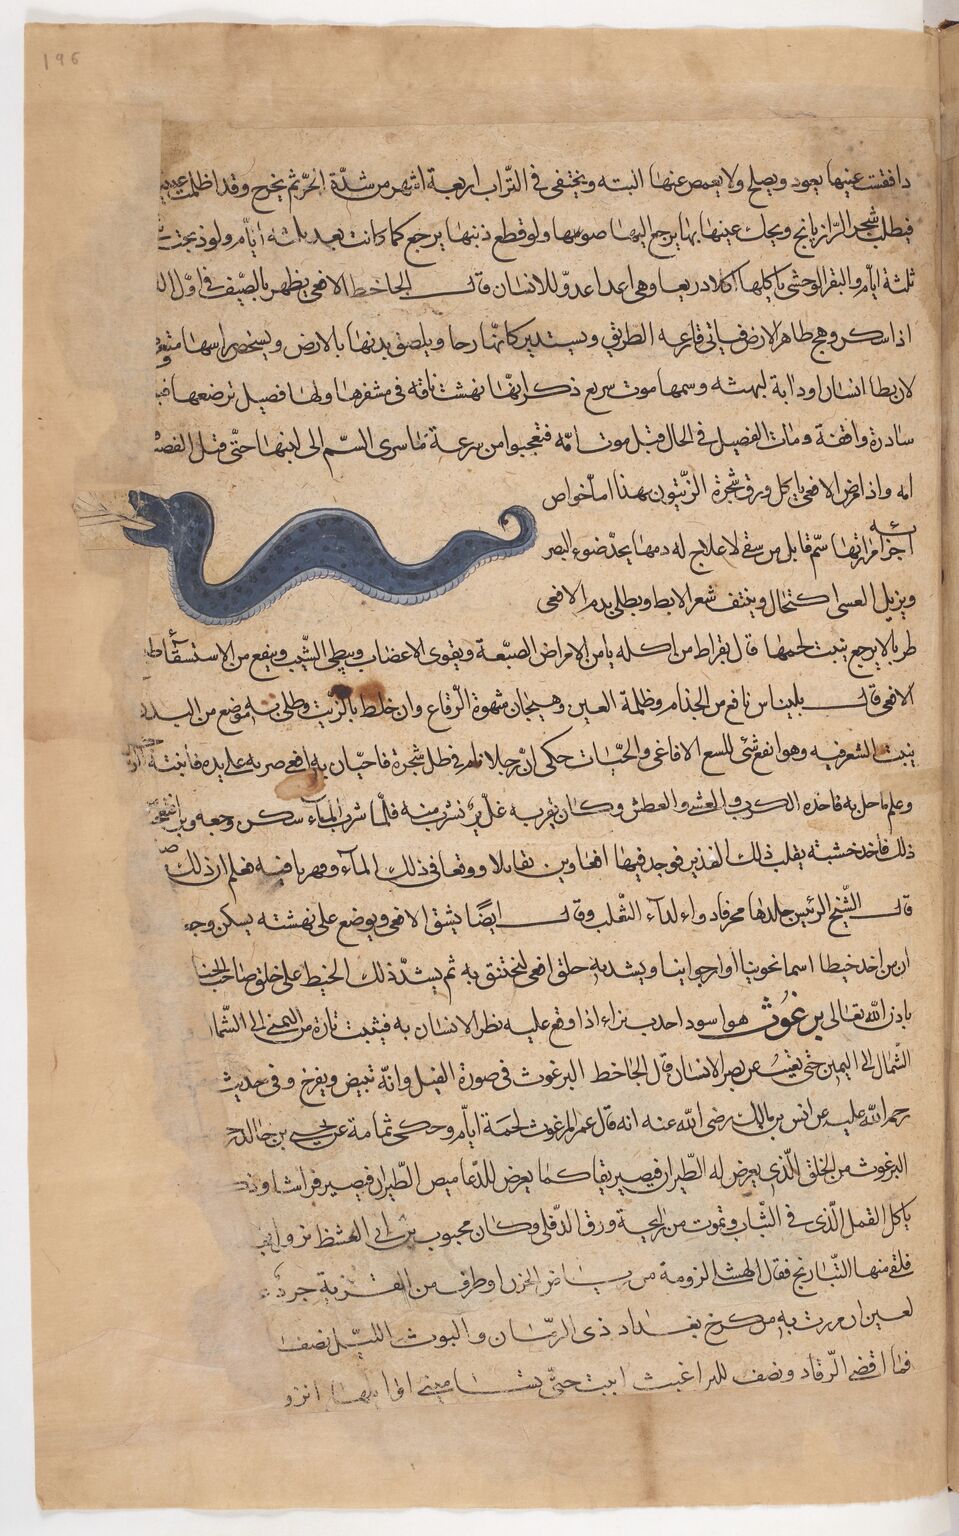 196
دا فقئت عينها يعود ويصلح ولا يغمض عنها البته ويختفى فى التراب اربعة اشهر من شدّة الحرّ ثم يخرج وقد اظلمت عينه
فيطلب شجر الرازيانج ويحك عينها بها يرجع اليها ضوءها ولو قطع ذنبها يرجع كما كانت بعد ثلثة ايّام ولو ذبحت
ثلثة ايام والبقر الوحشى ياكلها اكلا ذريعا وهى اعدا عدوّ للانسان قال الجاحظ الافعى يظهر بالصّيف فى اوّل الل
اذا سكن وهج ظاهر الارض فياتى قارعة الطريق ويستدير كانّها رحا ويلصق بدنها بالارض ويشخص راسها
لان يطا انسان او دابة لنهشه وسمها موت سريع ذكر انها نهشت ناقه فى مشفرها ولها فصيل ترضعها
سادرة واقفة ومات الفصيل فى الحال قبل موت امّه فتعجبوا من سرعة ما سرى السّم الى لبنها حتّى قتل
امه واذا مرض الافعى ياكل ورق شجرة الزيتون بهذا اما خواص
اجزائه مرارتها سّم قاتل من سقى لا علاج له دمها يحدّ ضوء البصر
ويزيل العشى اكتحالا وينتف شعر الابط ويطلى بدم الافعى
طريا لا يرجع ينبت لحمها قال بقراط من اكله يامن الامراض الصعبة ويقوى الاعضاب ويبطى الشّيب وينفع من الاستسقاء
الافعى قال بليناس نافع من الجذام وظلمة العين وهيجان شهوة الرقاع وان خلط بالزيت وطلى به موضع من البدن
ينبت الشعر فيه وهو انفع شئ للسع الافاعى والحيّات حكى انّ رجلا نام فى ظل شجرة فاحتال به افعى ضربه على يده فانتبه
وعلم ما حل به فاخذه الكرب والغشى والعطش وكان بقربه غدير شرب منه فلمّا شرب الماء سكن وجعه
ذلك فاخذ خشبة يقلب ذلك الغدير فوجد فيها افعاوين تقاتلا ووقعا فى ذلك الماء فعلم ان ذلك
قال الشّيخ الرئيس جلدها محرقا دواء لداء الثعلب وقال ايضًا يشق الافعى ويوضع على نهشته يسكن وجع
ان من اخذ خيطا اسمانجونيا او ارجوانيا ويشد به حلق افعى ليختنق به ثم يشدّ ذلك الخيط على حلق صاحب الخنا
باذن الله تعالى برغوث هو اسود احدب نزاء اذا وقع عليه نظر الانسان به فيثب تارة من اليمنى الى الشّمال
الشّمال الى اليمين حتى يغيب عن بصر الانسان قال الجاحظ البرغوث فى صورة الفيل وانّه تبيض ويفرخ وفى حديث
رحم الله عليه عن انس بن مالك رضى الله عنه انه قال عمر البرغوث لخمسة ايّام وحكى ثمامة عن يحيى بن خالد
البرغوث من الخلق الّذى يعرض له الطّيران فيصير بقا كما يعرض للدّعاميص الطّيران فيصير فراشا
ياكل القمل الّذى فى الثّياب وتموت من رايحة ورق الدّفلى وكان محبوب بن ابى العشنط
فلقى منها التّبارنج فقال الهشلى لروضة من رياض الحزن او طرف من القرية جرد
لعين ان مررت به من كرخ بغداد ذى الرمّان والتوث اللّيل نصف
فما اقضى الرّقاد ونصف للبراغيث ابيت حتى